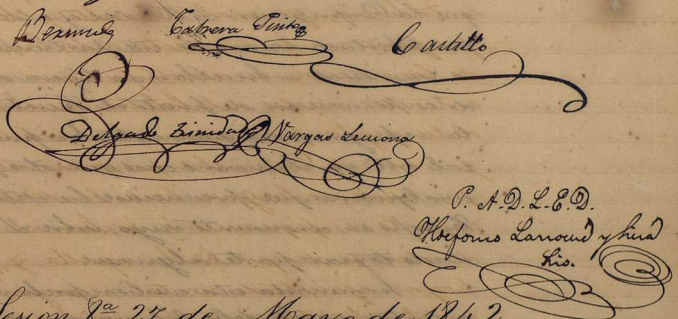 Bermudez Cabrera Pinto Castillo
Delgado Trinidad Vargas Lemona
P. A. D. L. E. D.
Ildefonso y
Srio.
Sesion 8ª 27 de Mayo de 1842